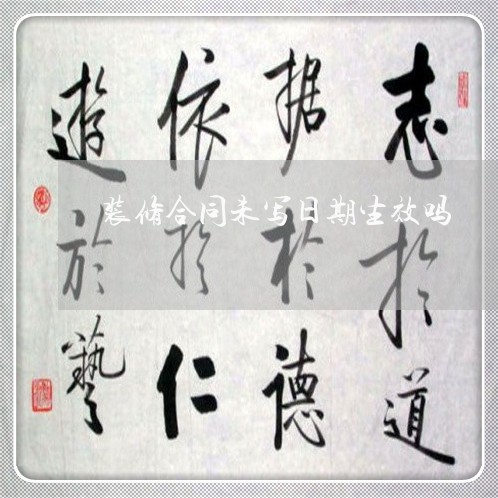 志於道
据於德
依於仁
遊於藝
装修合同未写日期生效吗